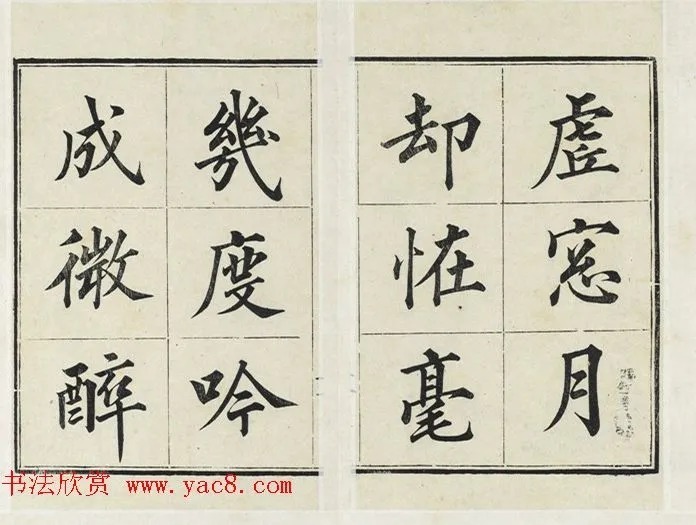 虗窓月
却恠毫
幾度吟
成微醉
书法欣赏 www.yac8.com